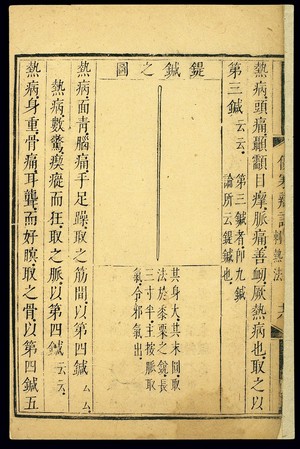 熱病頭痛顳顬目瘈脈痛善衄厥熱病也取之以
第三鍼云云 第三鍼者即九鍼
論所云鍉鍼也
鍉鍼之圖
其身大其末圓取
法於黍粟之銳長
三寸半主按脈取
氣令邪氣出
熱病面青腦痛手足躁取之筋間以第四鍼
熱病數驚瘈瘲而狂取之脈以第四鍼云云
熱病身重骨痛耳聾而好瞑取之骨以第四鍼五